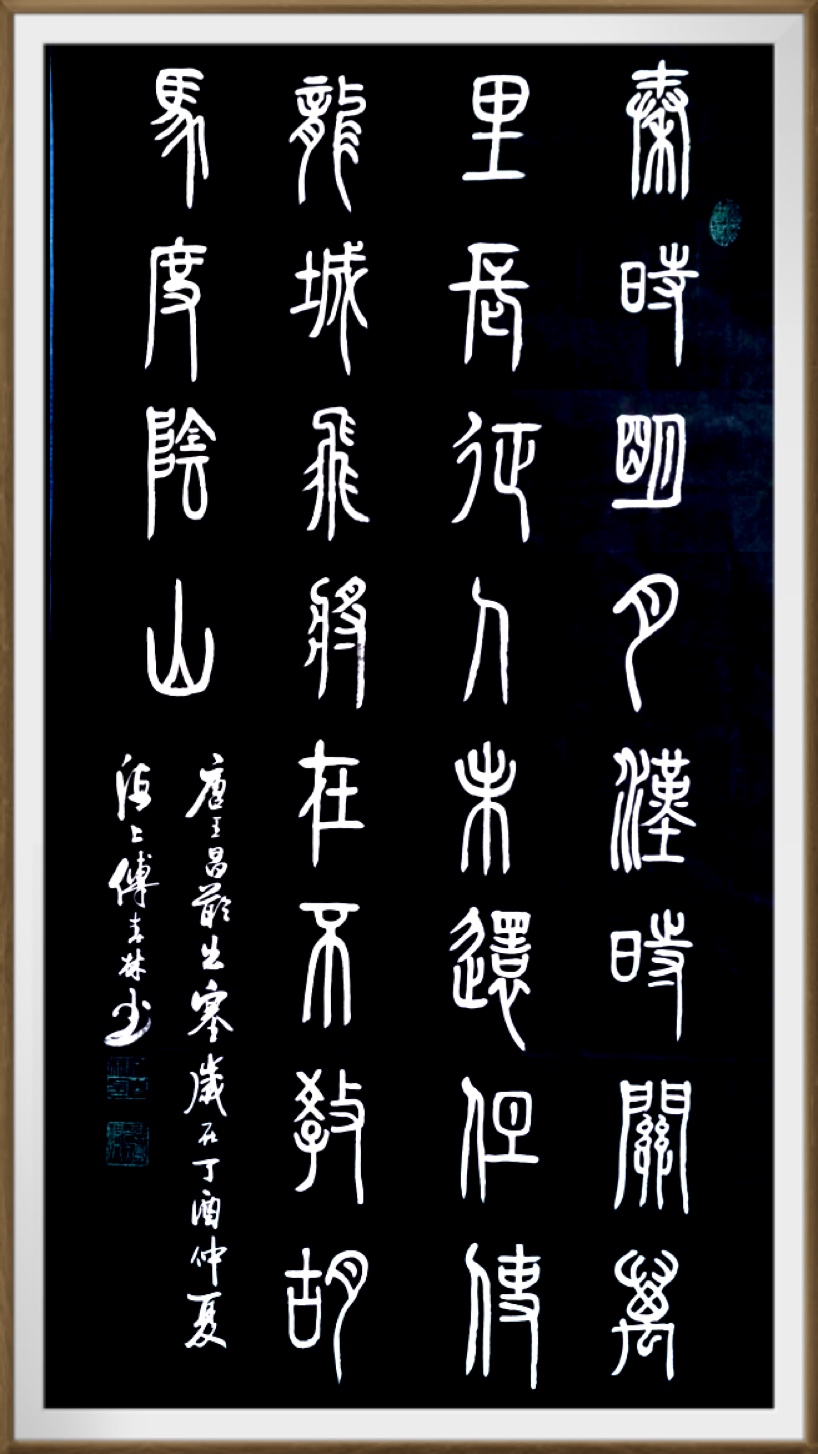 秦時明月漢時關萬
里長征人未還但使
龍城飛將在不教胡
馬度陰山
唐王昌齡出塞歲在丁酉仲夏
海上傅林书